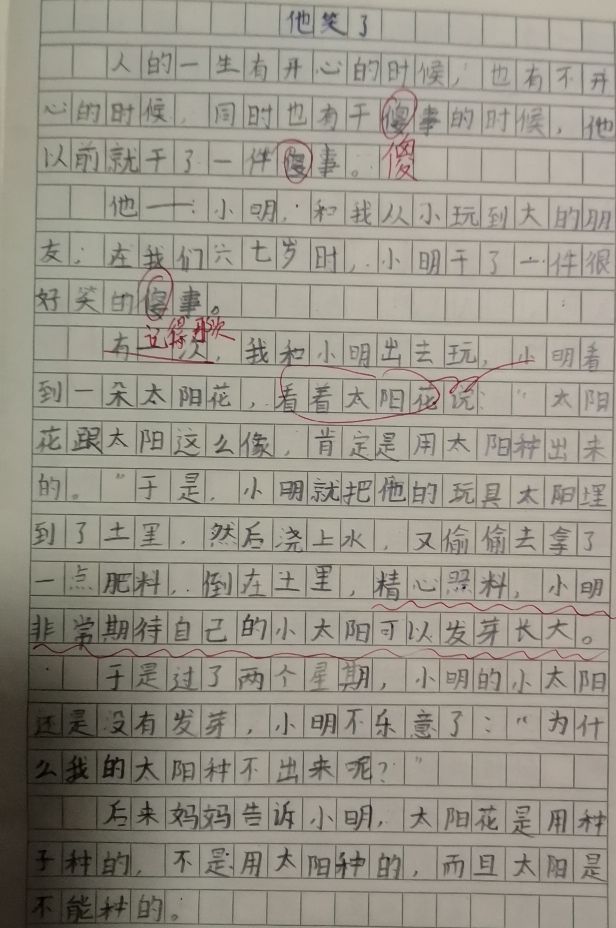 他笑了
人的一生有开心的时候，也有不开
心的时候，同时也有干傻事的时候，他
以前就干了一件傻事。傻
他——：小明，和我从小玩到大的朋
友；在我们六七岁时，小明干了一件很
好笑的傻事。
记得有一次
有一次，我和小明出去玩，小明看
到一朵太阳花，看着太阳花说："太阳
花跟太阳这么像，肯定是用太阳种出来
的。"于是，小明就把他的玩具太阳埋
到了土里，然后浇上水，又偷偷去拿了
一点肥料，倒在土里，精心照料，小明
非常期待自己的小太阳可以发芽长大。
于是过了两个星期，小明的小太阳
还是没有发芽，小明不乐意了："为什
么我的太阳种不出来呢？"
后来妈妈告诉小明，太阳花是用种
子种的，不是用太阳种的，而且太阳是
不能种的。